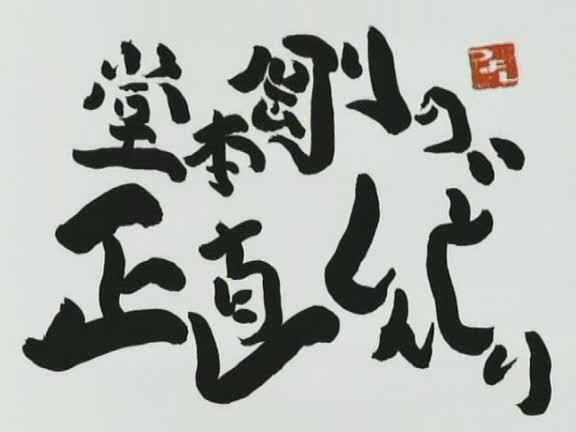 堂本剛の
つよし
正直しんどい